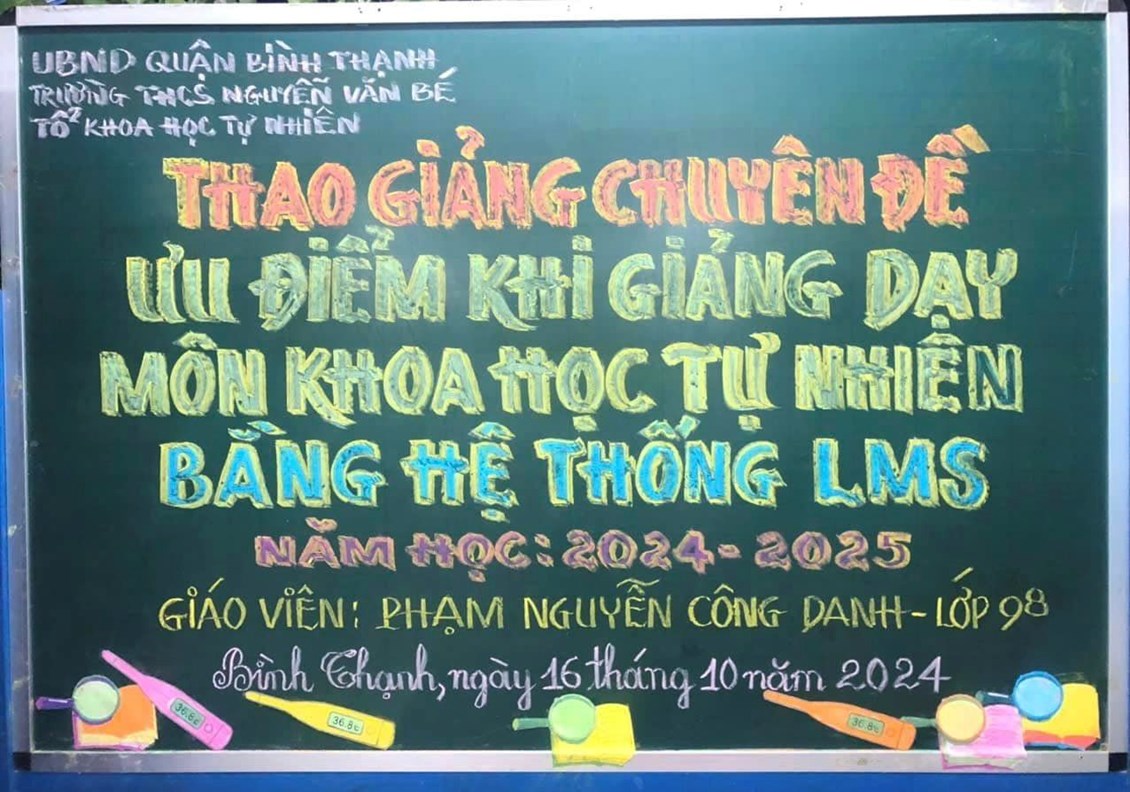 UBND QUẬN BÌNH THẠNH
TRƯỜNG THCS NGUYỄN VĂN BÉ
TỔ KHOA HỌC TỰ NHIÊN
THAO GIẢNG CHUYÊN ĐỀ
ƯU ĐIỂM KHI GIẢNG DẠY
MÔN KHOA HỌC TỰ NHIÊN
BẰNG HỆ THỐNG LMS
NĂM HỌC: 2024-2025
GIÁO VIÊN: PHẠM NGUYỄN CÔNG DANH - LỚP 9⁸
Bình Thạnh, ngày 16 tháng 10 năm 2024
36.8°c
36.8°c
36.8°c